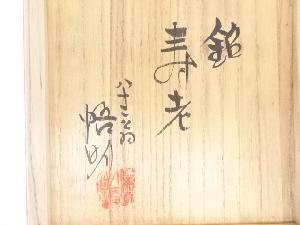 銘
寿老
八十三翁
悟明